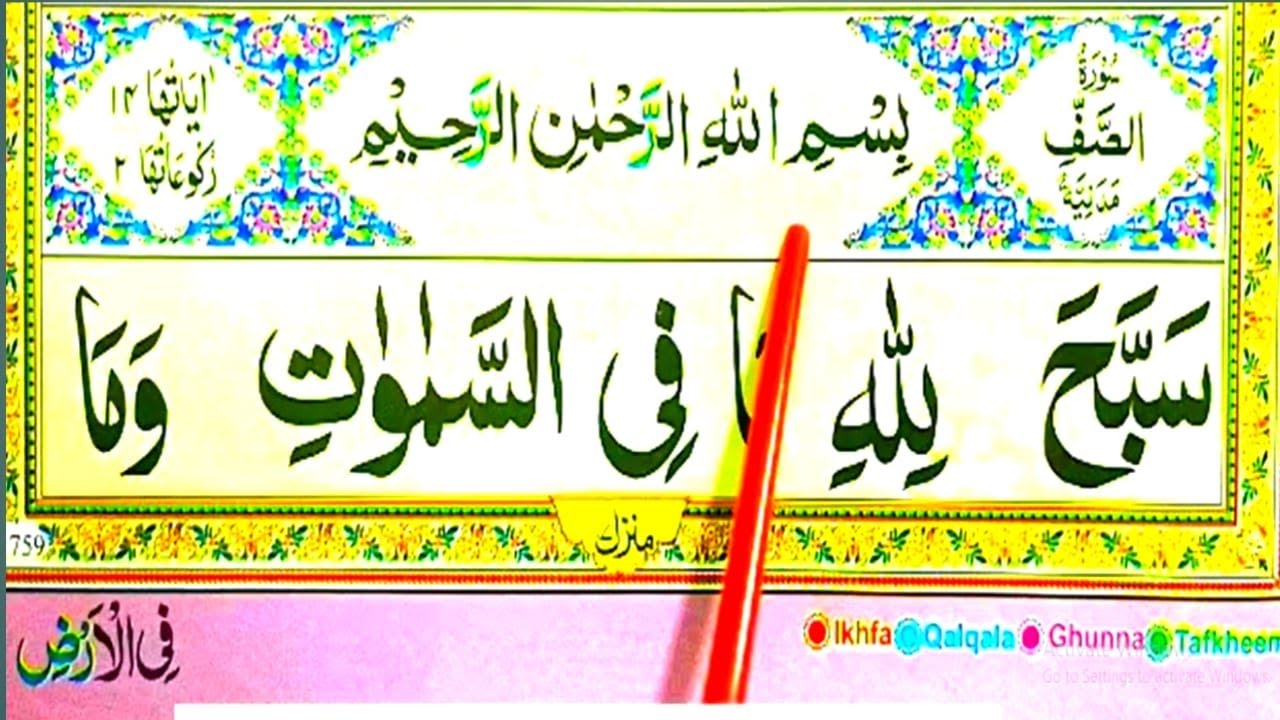 سُوْرَةُ
الصَّفِّ
مَدَنِيَّةٌ
بِسْمِ اللّٰهِ الرَّحْمٰنِ الرَّحِيْمِ
اٰيَاتُهَا ١٤
رُكُوْعَاتُهَا ٢
سَبَّحَ لِلّٰهِ فِى السَّمٰوٰتِ وَمَا
759
منزل
فِى الْاَرْضِ
Ikhfa Qalqala Ghunna Tafkheem
Go to Settings to activate Windows.